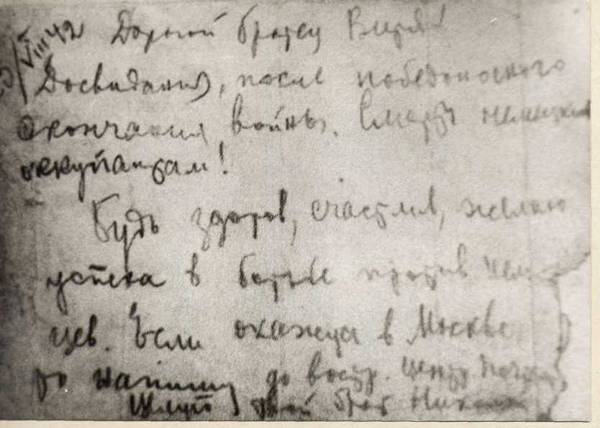 /VIII 42 Дорогой братец Витя!
Досвидания, после победоносного
окончания войны. Смерть немецким
оккупантам!
Будь здоров, счастлив, желаю
успеха в борьбе против нем
цев. Если окажеця в Москве
то напишу до востр. центр. почт
твой брат